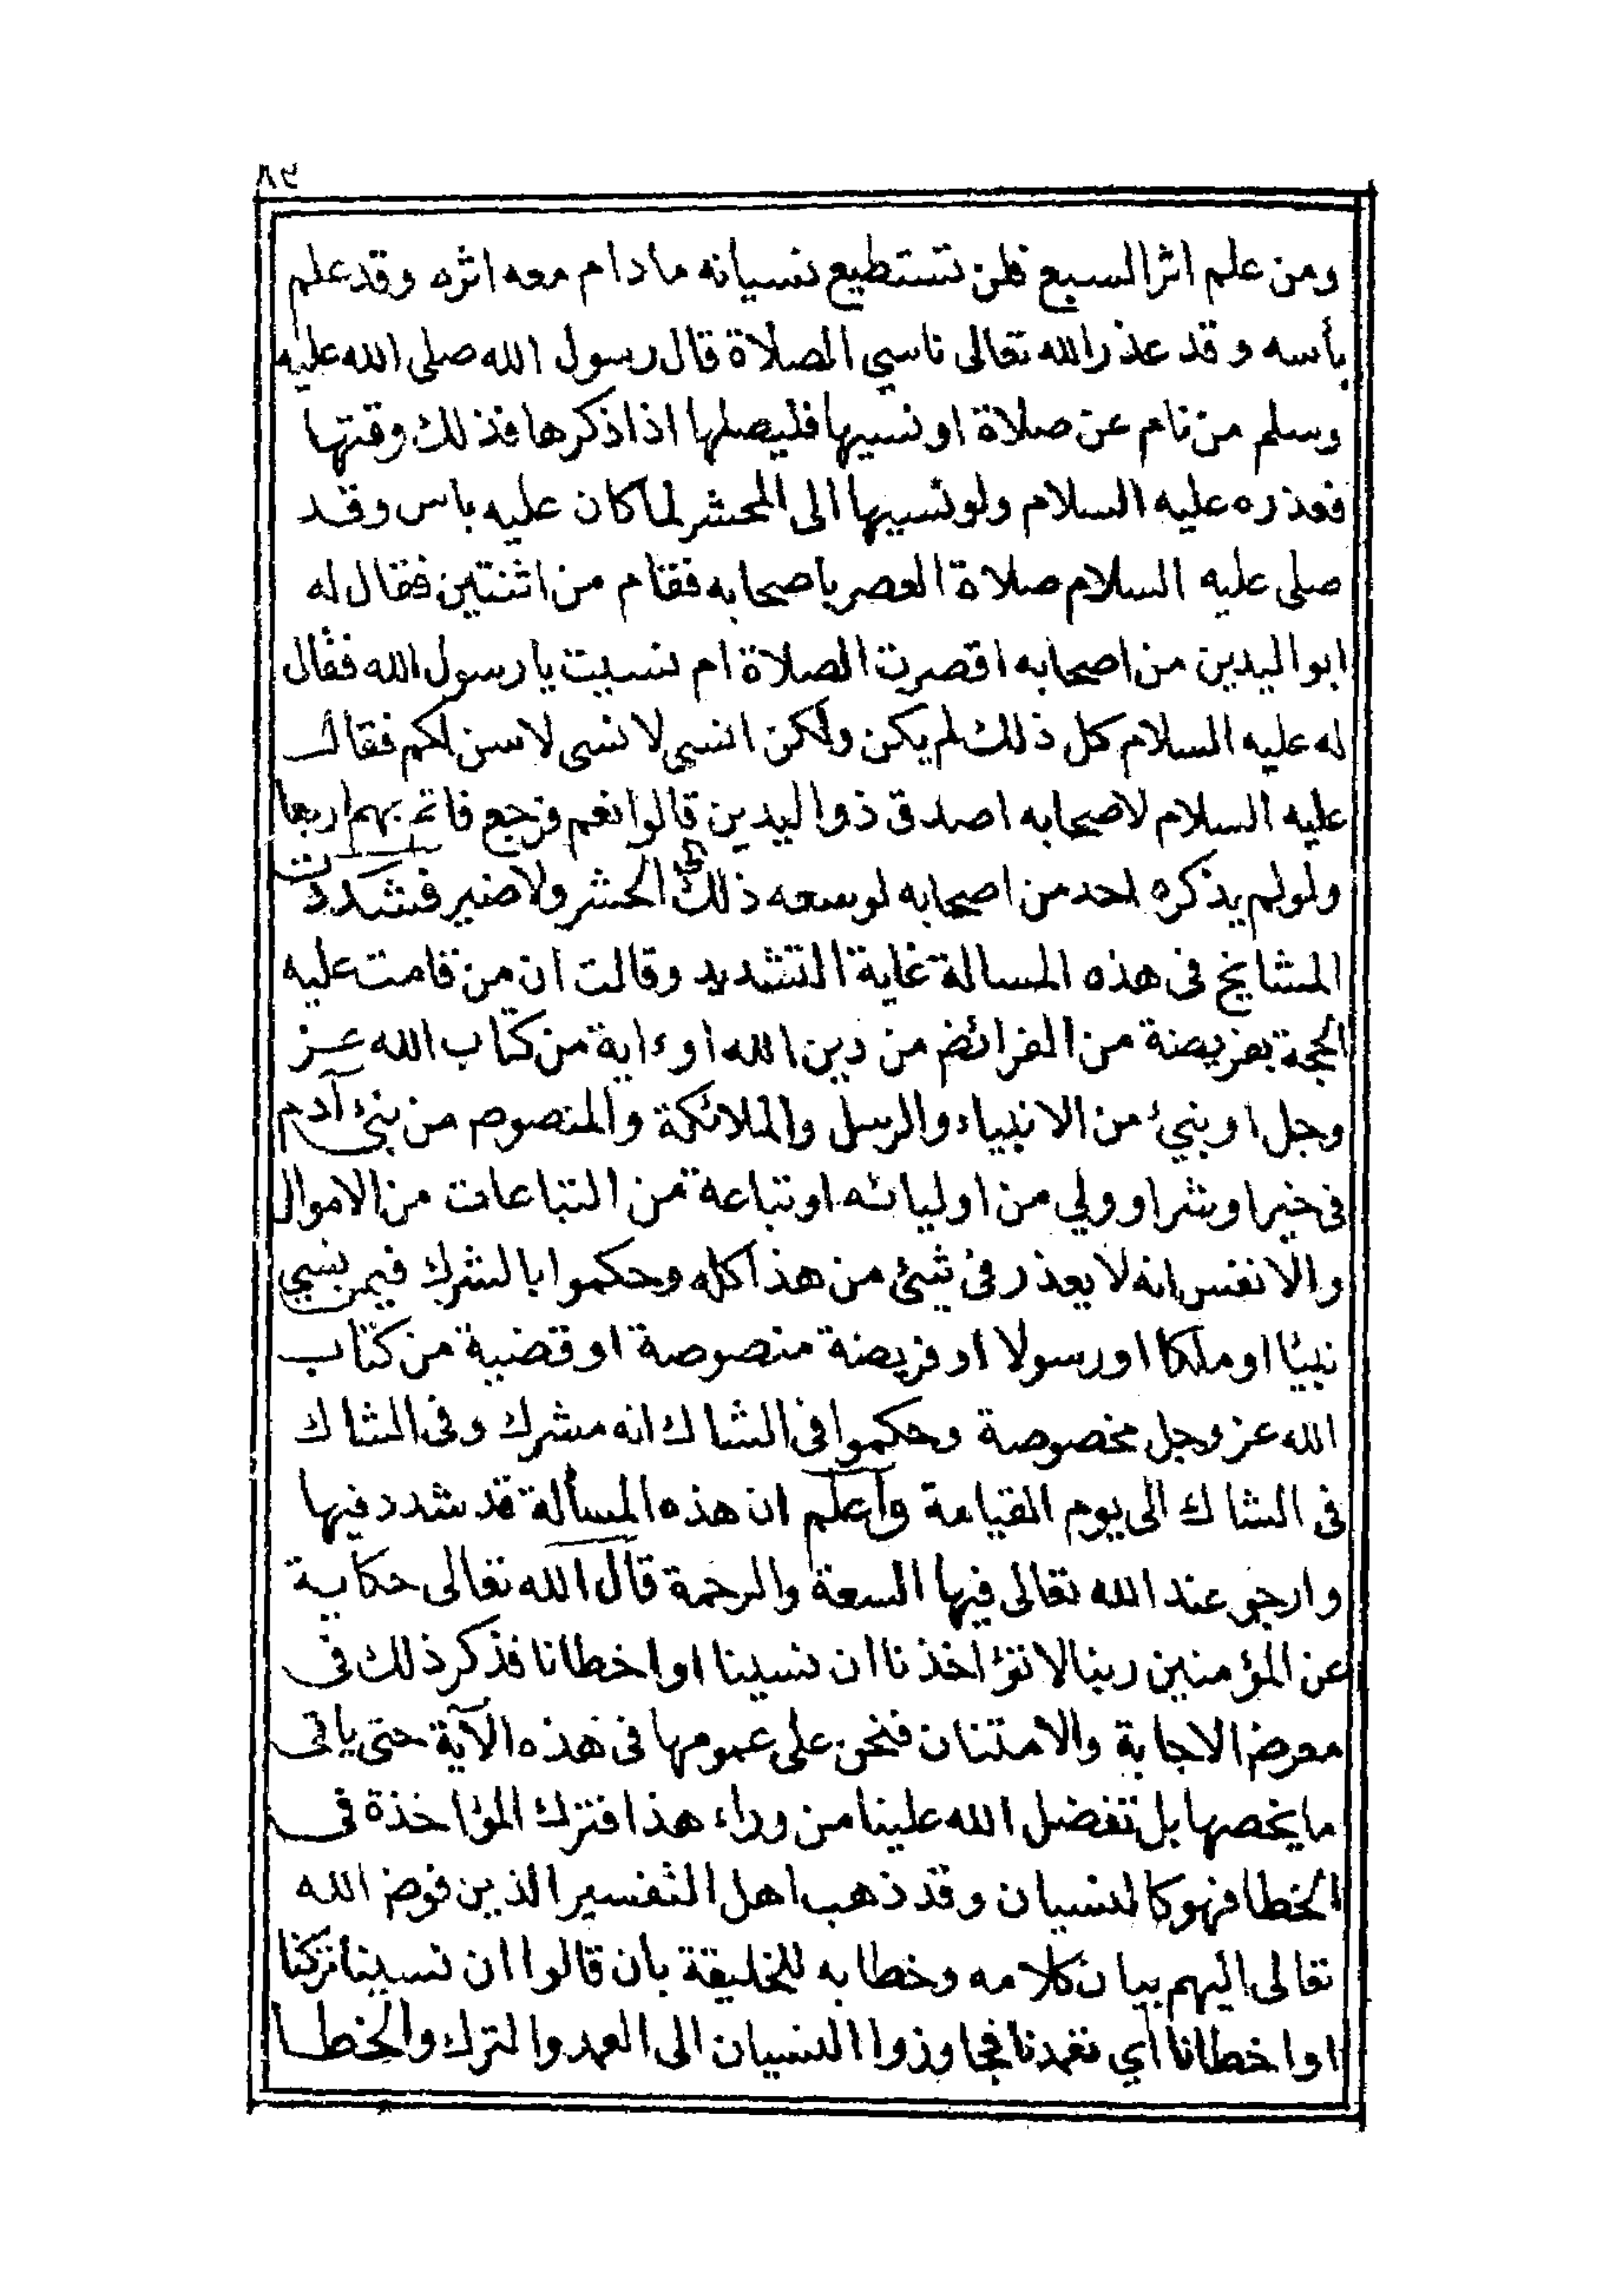 ٨٩
ومن علم اثر السبع فلن تستطيع نسيانه ما دام معه اثره وقد علم
بأسه وقد عذر الله تعالى ناسي الصلاة قال رسول الله صلى الله عليه
وسلم من نام عن صلاة او نسيها فليصلها اذا ذكرها فذلك وقتها
فعذره عليه السلام ولو نسيها الى المحشر لما كان عليه باس وقد
صلى عليه السلام صلاة العصر باصحابه فقام من اثنتين فقال له
ابو اليدين من اصحابه اقصرت الصلاة ام نسيت يا رسول الله فقال
له عليه السلام كل ذلك لم يكن ولكن انسى لا نسى لاسن لكم فقال
عليه السلام لاصحابه اصدق ذو اليدين قالوا نعم فرجع فاتم بهم اربعا
ولو لم يذكره احد من اصحابه لوسعه ذلك الحشر ولا ضير فشددت
المشايخ فى هذه المسالة غاية التشديد وقالت ان من قامت عليه
الحجة بفريضة من الفرائض من دين الله او ءاية من كتاب الله عز
وجل او بنيء من الانبياء والرسل والملائكة والمنصوص من بنيء آدم
فى خير او شر او ولي من اوليائه او تباعة من التباعات من الاموال
والانفس انه لا يعذر فى شيء من هذا كله وحكموا بالشرك فيمن نسي
نبيئا او ملكا او رسولا او فريضة منصوصة او قضية من كتاب
الله عز وجل مخصوصة وحكموا فى الشاك انه مشرك وفى الشاك
فى الشاك الى يوم القيامة واعلم ان هذه المسألة قد شدد فيها
وارجو عند الله تعالى فيها السعة والرحمة قال الله تعالى حكاية
عن المؤمنين ربنا لا تؤاخذنا ان نسينا او اخطانا فذكر ذلك فى
معرض الاجابة والامتنان فنحن على عمومها فى هذه الآية حتى ياتى
ما يخصها بل تفضل الله علينا من وراء هذا فترك المؤاخذة فى
الخطا فهو كالنسيان وقد ذهب اهل التفسير الذين فوض الله
تعالى اليهم بيان كلامه وخطابه للخليقة بان قالوا ان نسينا تركنا
او اخطانا أي تعمدنا فجاوزوا النسيان الى العمد والترك والخطا